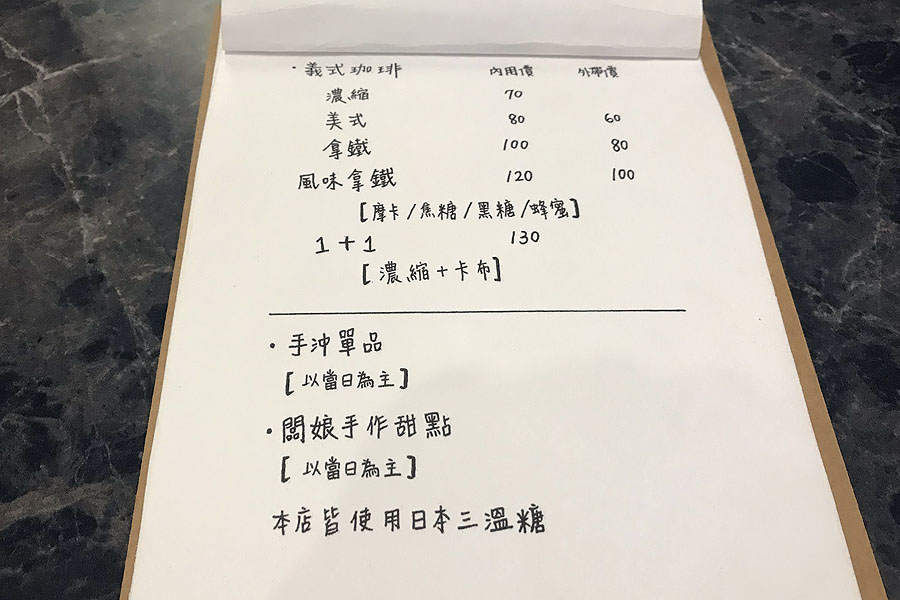 ・義式珈琲 內用價 外帶價
濃縮 70
美式 80 60
拿鐵 100 80
風味拿鐵 120 100
[摩卡/焦糖/黑糖/蜂蜜]
1+1 130
[濃縮+卡布]
・手沖單品
[以當日為主]
・闆娘手作甜點
[以當日為主]
本店皆使用日本三溫糖